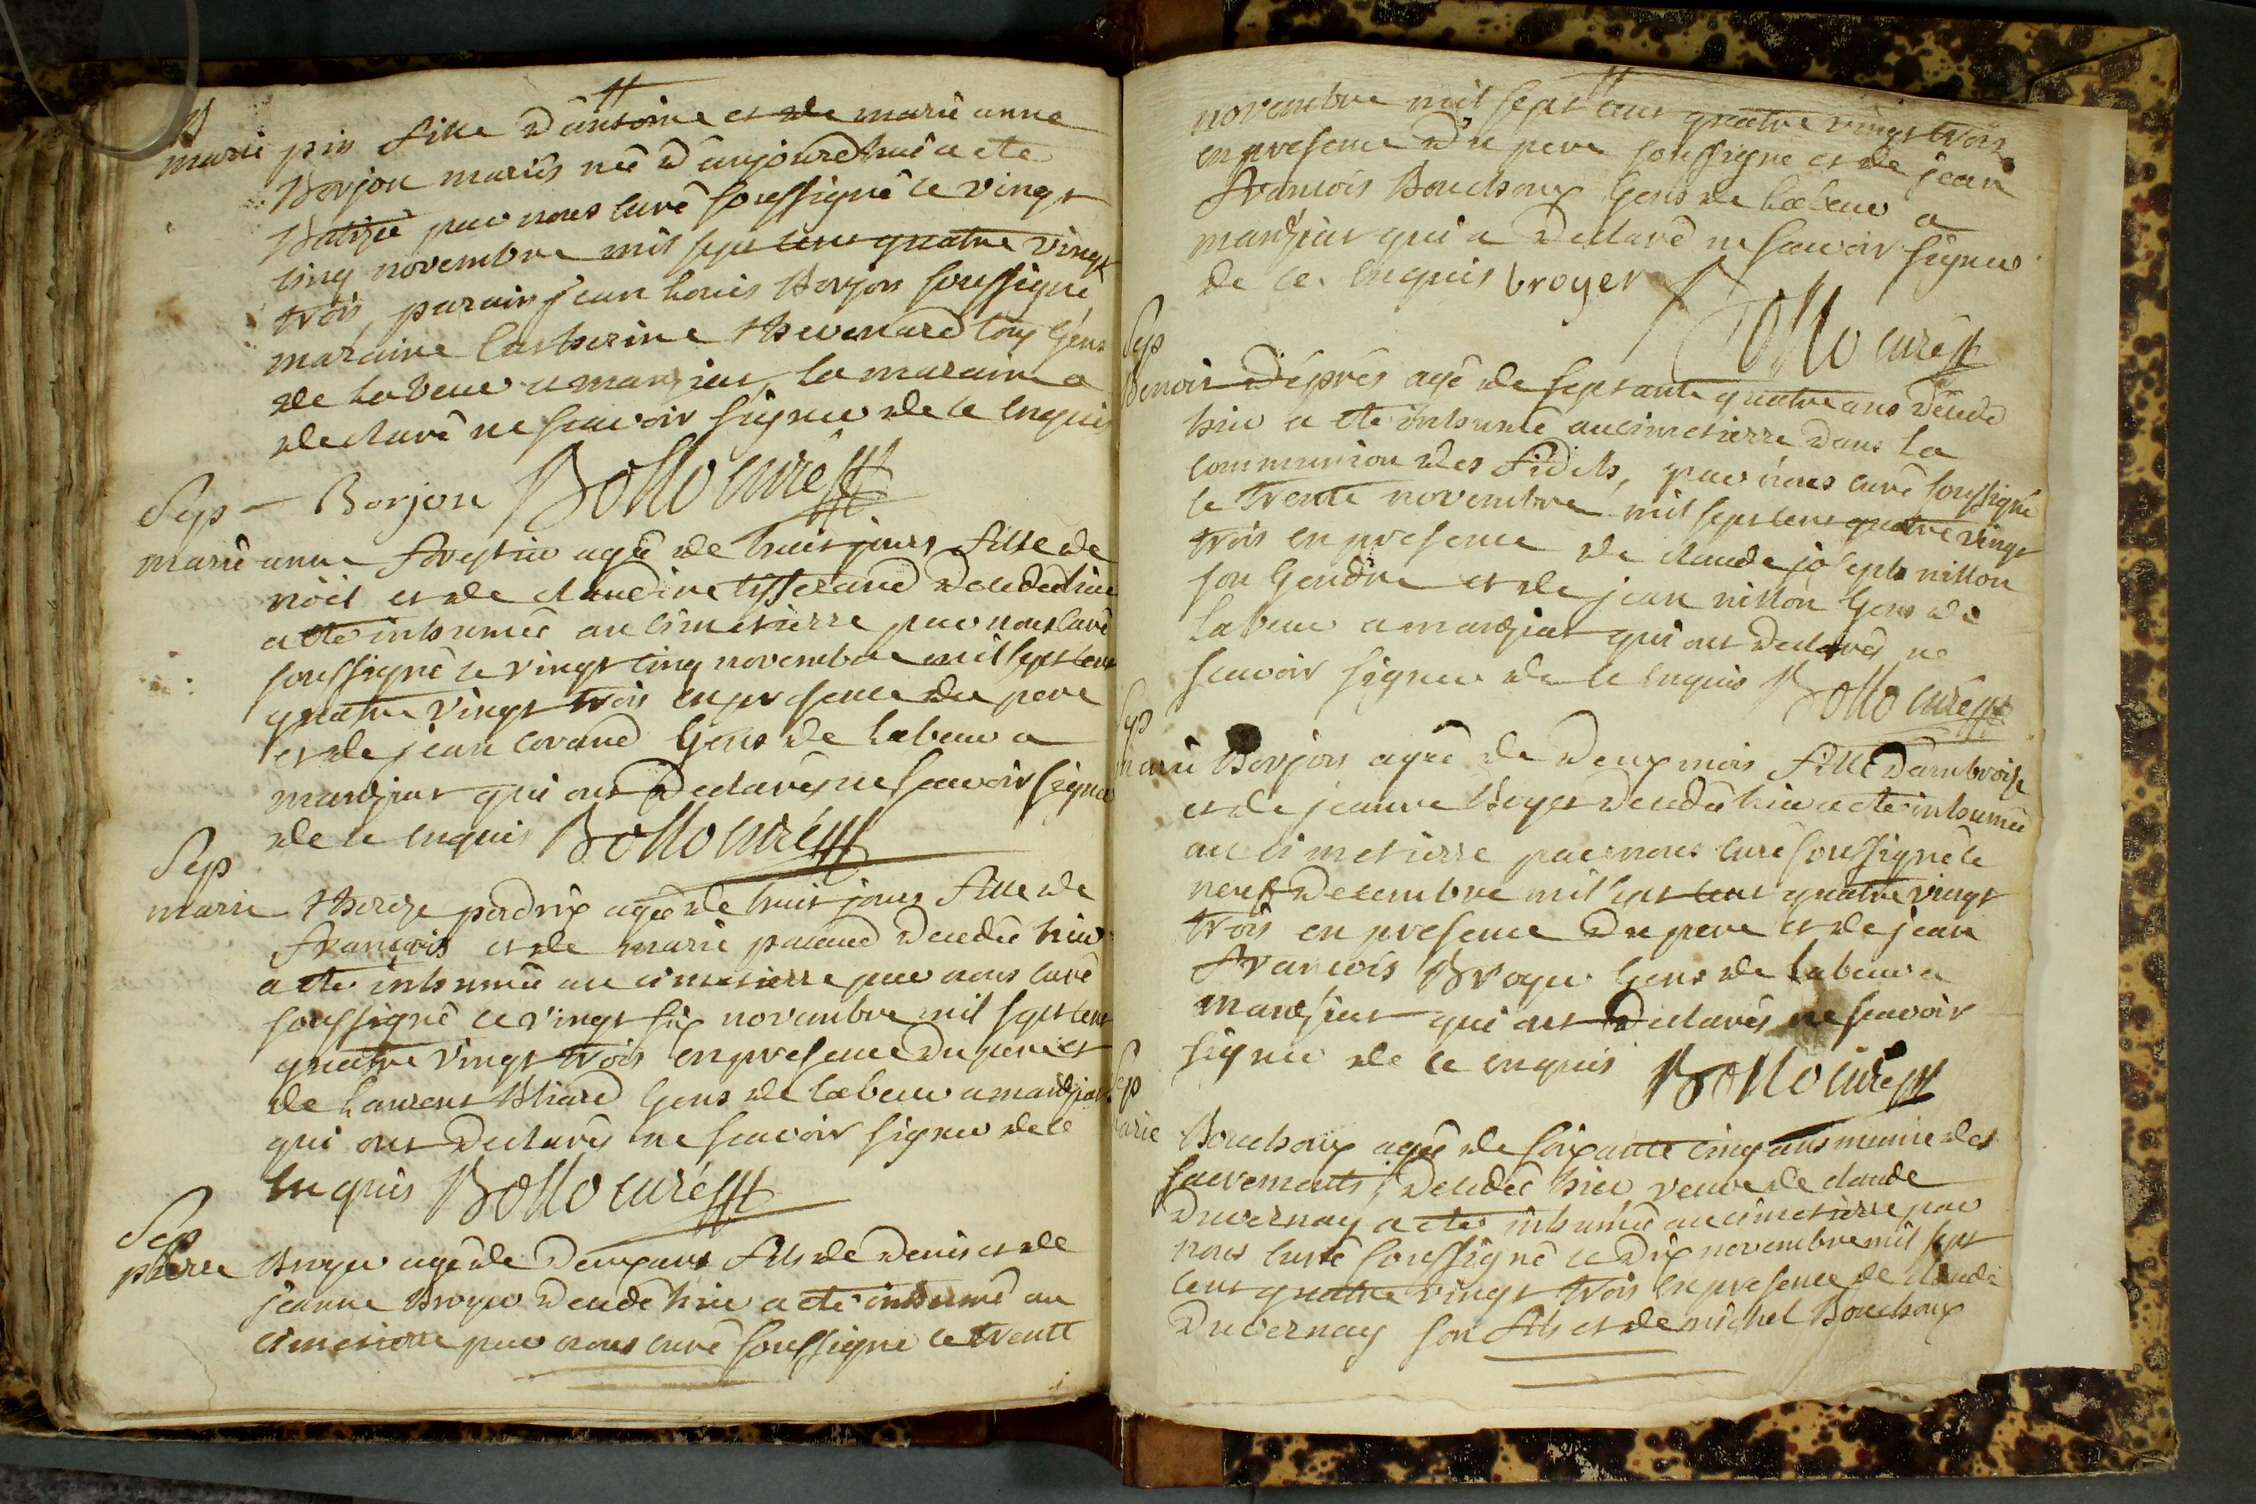 B
marie pin fille d'antoine et de marie anne
Borjon mariés née d'aujourdhui a ete
Batizée par nous curé soussigné le vingt
cinq novembre mil sept cent quatre vingt
trois, parain jean Louis Borjon soussigné
maraine Catherine thevenard tous gens
de Labeur a marziat, la maraine a
declaré ne scavoir signer de ce enquis
Sep - Borjon Bollo curé
marie anne age de huit jours fille de
noël et de claudine tisserand decedée hier
a ete inhumée au cimetierre par nous curé
soussigné le vingt cinq novembre mil sept cent
quatre vingt trois en presence du pere
et de jean Corand gens de labeur a
marziat qui ont declarés ne scavoir signer
de ce enquis Bollo curé
Sep
marie therese perdrix agée de huit jours fille de
françois et de marie pacaud decedée hier
a ete inhumée au cimetierre par nous curé
soussigné ce vingt six novembre mil sept cent
quatre vingt trois en presence du pere et
de Laurent Bliard gens de labeur a marziat
qui ont declarés ne scavoir signer de ce
enquis Bollo curé
Sep
pierre Broyer agé de deux ans fils de Denis et de
jeanne Broyer decedé hier a ete inhumé au
cimetierre par nous curé soussigné le trente
novembre mil sept cent quatre vingt trois
en presence du pere soussigné et de jean
francois Bouchoux gens de labeur a
marziat qui a declaré ne scavoir signer
de ce enquis broyer
Bollo curé
Sep
Benoit Déprés agé de septante quatre ans decedé
hier a ete inhumé au cimetierre dans la
communion des fidels, par nous curé soussigné
le trente novembre mil sept cent quatre vingt
trois en presence de claude joseph nillon
son gendre et de jean nillon gens de
labeur a marziat qui ont declarés ne
scavoir signer de ce enquis Bollo curé
Sep
marie Borjon agée de deux mois fille d'ambroise
et de jeanne Boyer decedée hier a ete inhumée
au cimetierre par nous curé soussigné le
neuf decembre mil sept cent quatre vingt
trois en presence du pere et de jean
francois Broyer gens de labeur a
marziat qui ont declarés ne scavoir
signer de ce enquis Bollo curé
Sep
marie Bouchoux agée de soixante cinq ans munie des
sacrements, decedée hier veuve de claude
Duvernay a ete inhumée au cimetierre par
nous curé soussigné le dix novembre mil sept
cent quatre vingt trois en presence de claude
Duvernay son fils et de michel Bouchoux